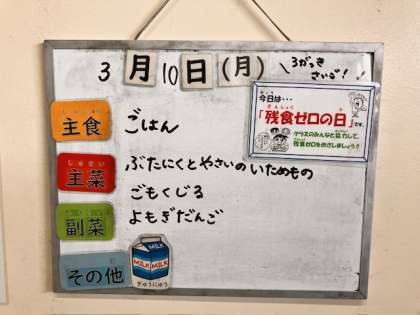 3月10日(月)
3がっき
さいご!
今日は…
ざんしょく
「残食ゼロの日」です。
クラスのみんなと協力して、
残食ゼロをめざしましょう!
主食
ごはん
しゅさい
主菜
ぶたにくとやさいのいためもの
ごもくじる
副菜
よもぎだんご
その他
MILK MILK
ぎゅうにゅう